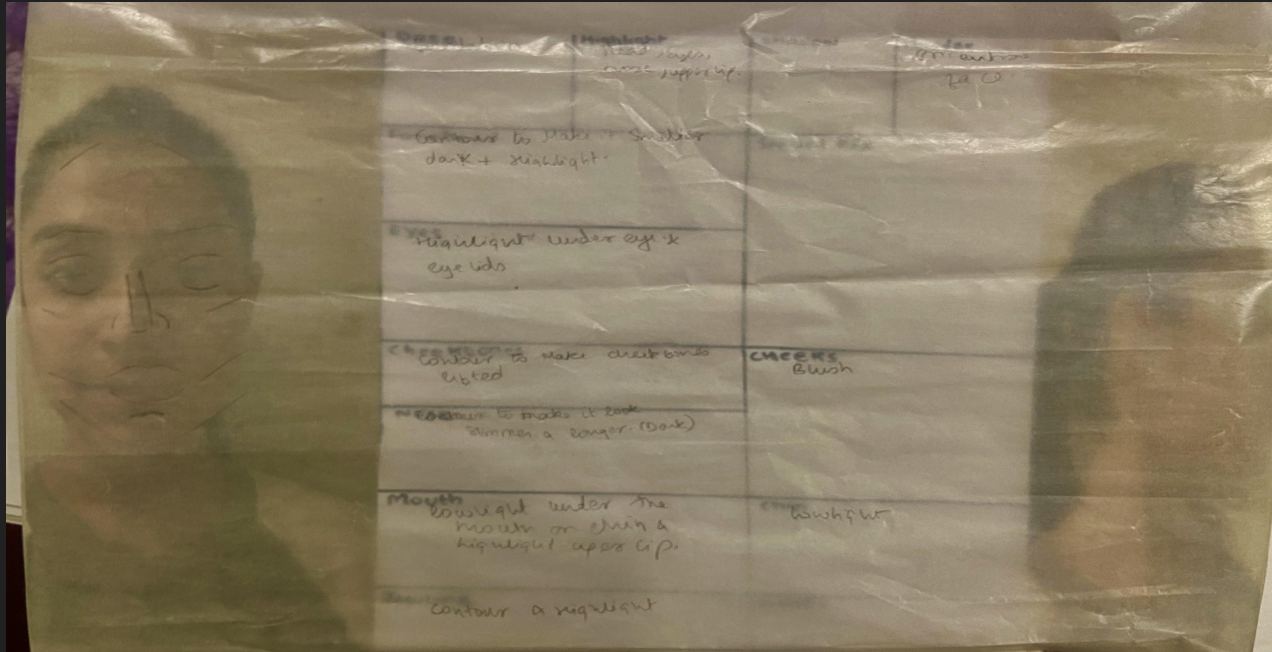 Highlight
Head, eyes,
nose, upper lip.
on entire
face
Contour to Make it Smaller
dark + Highlight.
Eyes
Highlight under eye &
eye lids
Cheekbones
Contour to Make cheekbones
lifted
CHEEKS
Blush
to make it look
slimmer & longer. (Dark)
Mouth
lowlight under the
mouth or chin &
highlight uper lip.
lowlight
Contour & Highlight